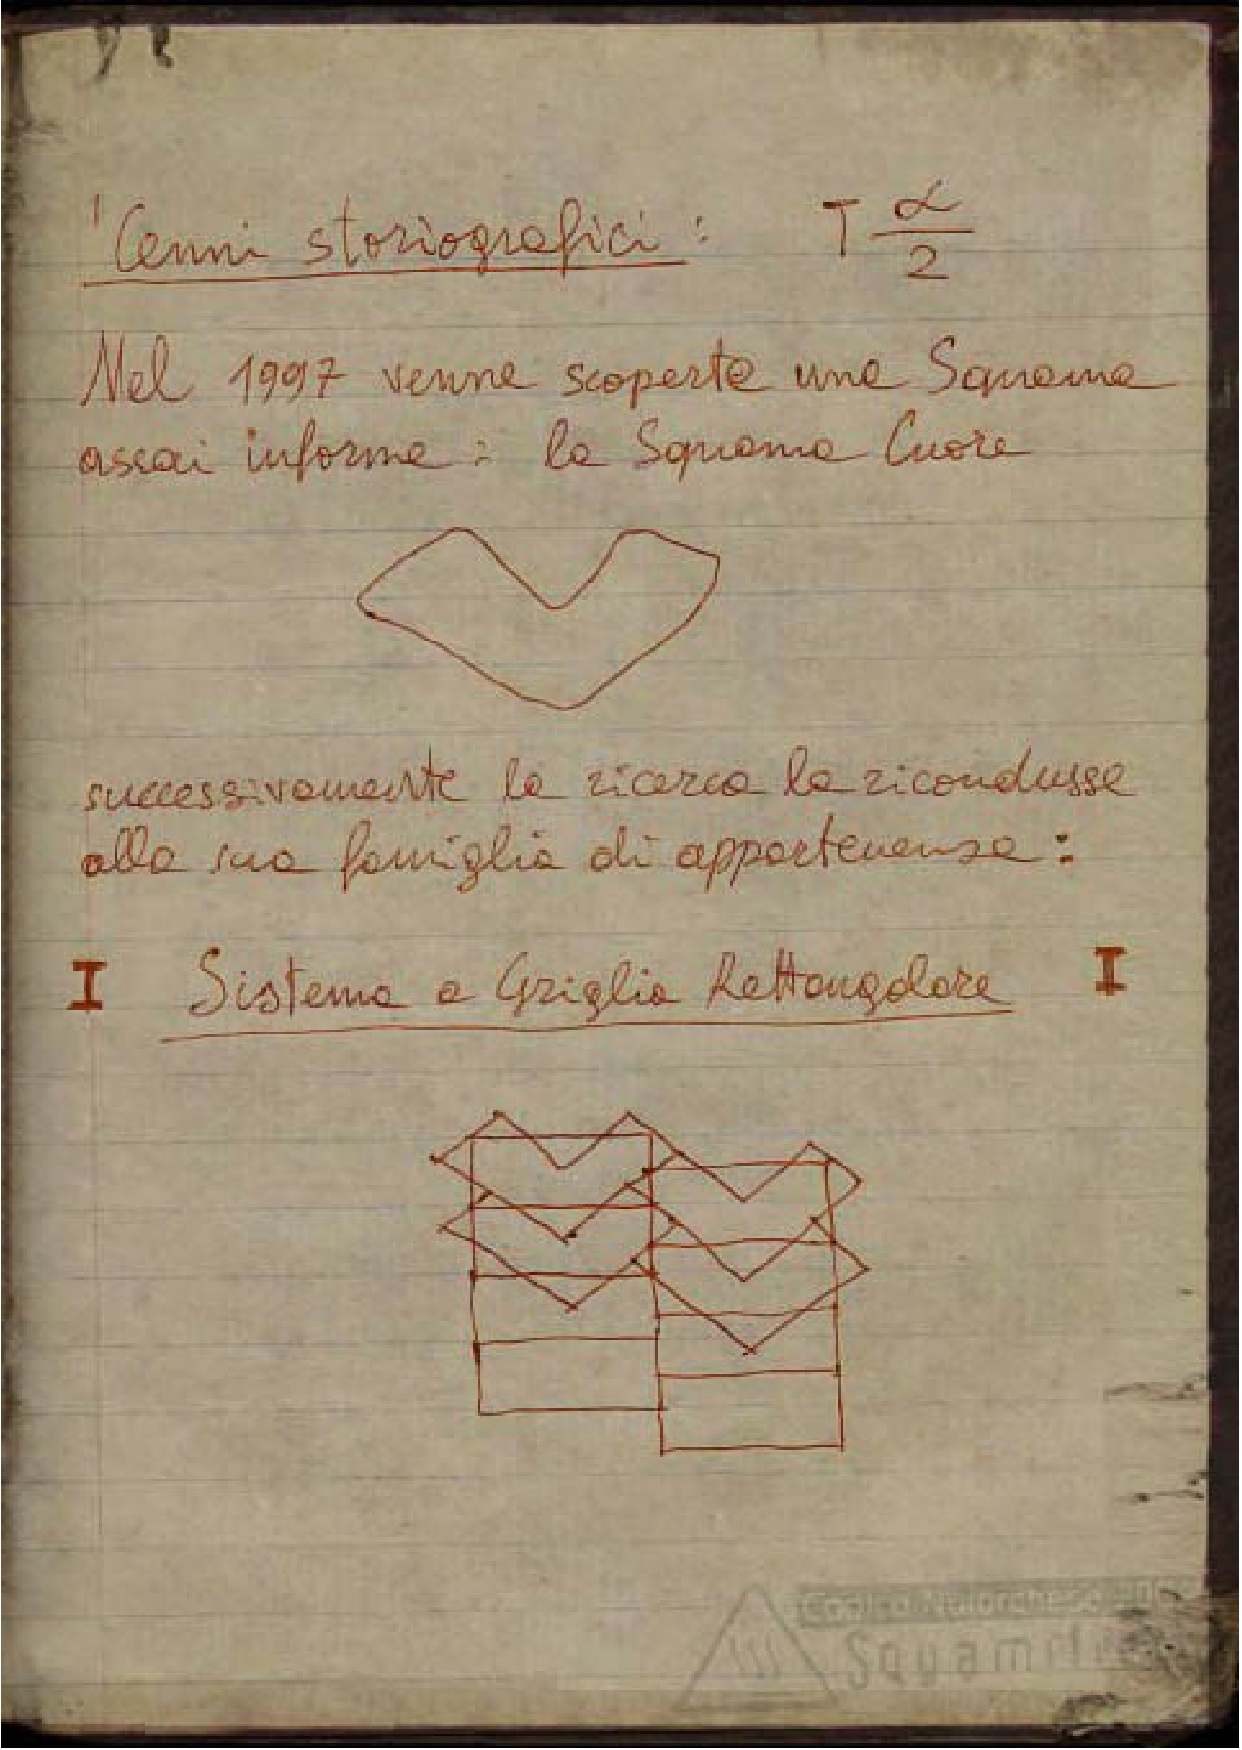 Cenni storiografici : T α/2
Nel 1997 venne scoperta una Squama
assai informe : la Squama Cuore
successivamente la ricerca la ricondusse
alla sua famiglia di appartenenza :
I Sistema a Griglia Rettangolare I
Squamific